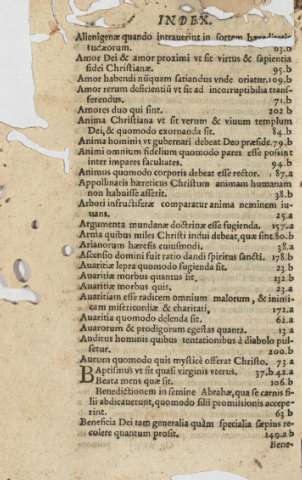 INDEX.
Alienigenæ quando intrauerint in sortem
Iudæorum. 63.b
Amor Dei & amor proximi vt sit virtus & sapientia
fidei Christianæ. 95.b
Amor habendi nūquam satiandus vnde oriatur. 109.b
Amor rerum descitentiū vt sit ad incorruptibilia transferendus. 71.b
Amores duo qui sint. 202.b
Anima Christiana vt sit verum & viuum templum
Dei, & quomodo exornanda sit. 84.b
Anima hominis vt gubernari debeat Deo præside. 79.b
Animi omnium fidelium quomodo pares esse possint
inter impares facultates. 94.b
Animus quomodo corporis debeat esse rector. 187.a
Appollinaris hæreticus Christum animam humanam
non habuisse asserit. 38.b
Arbori infructiferæ comparatur anima neminem iuuans. 25.a
Argumenta mundanæ doctrinæ esse fugienda. 157.a
Arma quibus miles Christi indui debeat, quæ sint. 80.b
Arianorum hæresis cuiusmodi. 38.a
Ascensio domini fuit ratio dandi spiritus sancti. 178.b
Auaritiæ lepra quomodo fugienda sit. 23.b
Auaritiæ morbus quantus sit. 132.b
Auaritiæ morbus quis. 23.a
Auaritiam esse radicem omnium malorum, & inimicam misericordiæ & charitati. 172.a
Auaritia quomodo delenda sit. 61.a
Auarorum & prodigorum egestas quanta. 13.a
Auditus hominis quibus tentationibus à diabolo pulsetur. 200.b
Aurum quomodo quis mysticè offerat Christo. 73.a
BAptismus vt sit quasi virginis vterus. 37.b 42.a
Beata mens quæ sit. 106.b
Benedictionem in semine Abrahæ, qua se carnis filii abdicauerunt, quomodo filii promissionis acceperint. 63 b
Beneficia Dei tam generalia quàm specialia sæpius recolere quantum prosit. 149.a b
Bene-